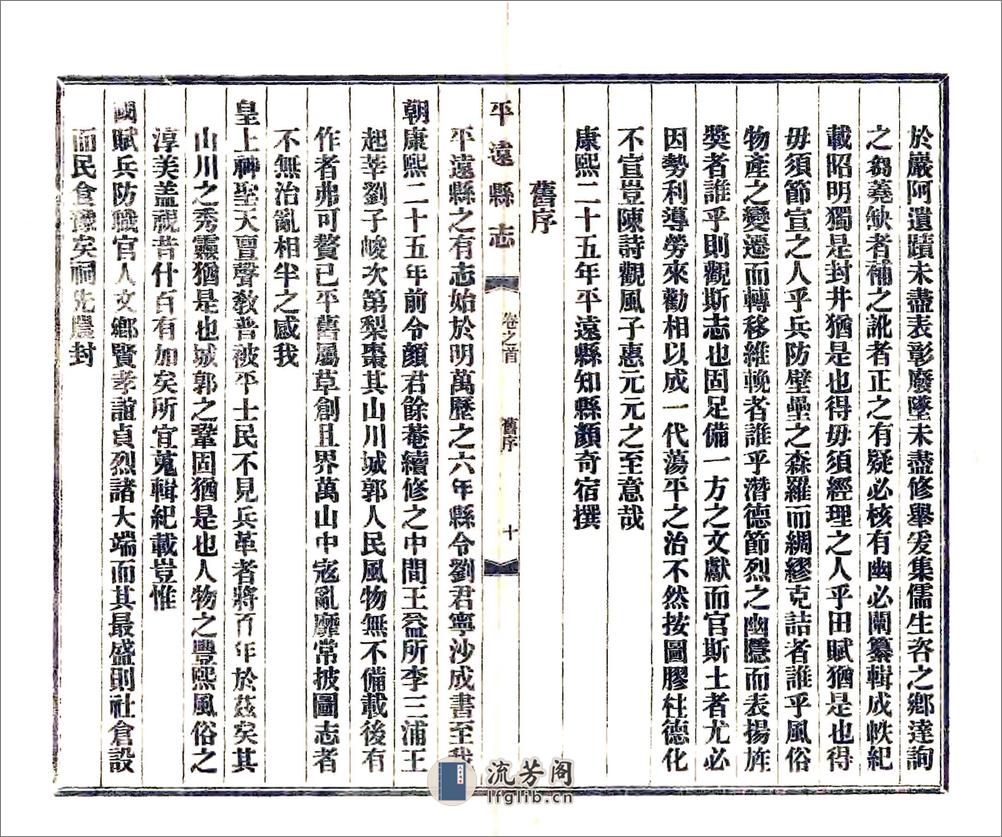 於巖阿遺蹟未盡表彰廢墜未盡修舉爰集儒生咨之鄉達詢
之芻蕘缺者補之訛者正之有疑必核有幽必闡纂輯成帙紀
載昭明獨是封井猶是也得毋須經理之人乎田賦猶是也得
毋須節宣之人乎兵防壁壘之森羅而綢繆克詰者誰乎風俗
物產之變遷而轉移維輓者誰乎潛德節烈之幽隱而表揚旌
獎者誰乎則觀斯志也固足備一方之文獻而官斯土者尤必
因勢利導勞來勸相以成一代蕩平之治不然按圖膠柱德化
不宣豈陳詩觀風子惠元元之至意哉
康熙二十五年平遠縣知縣顏奇宿撰
舊序
平遠縣志
卷之首
舊序
十
平遠縣之有志始於明萬歷之六年縣令劉君寧沙成書至我
朝康熙二十五年前令顏君餘菴續修之中間王益所李三浦王
起莘劉子峻次第梨棗其山川城郭人民風物無不備載後有
作者弗可贅已平舊屬草創且界萬山中寇亂靡常披圖志者
不無治亂相半之感我
皇上神聖天亶聲敎普被平士民不見兵革者將百年於茲矣其
山川之秀靈猶是也城郭之鞏固猶是也人物之豐熙風俗之
淳美盖視昔什百有加矣所宜蒐輯紀載豈惟
國賦兵防職官人文鄉賢孝誼貞烈諸大端而其最盛則社倉設
而民食豫矣祠先農封
流芳阁
lfglib.cn